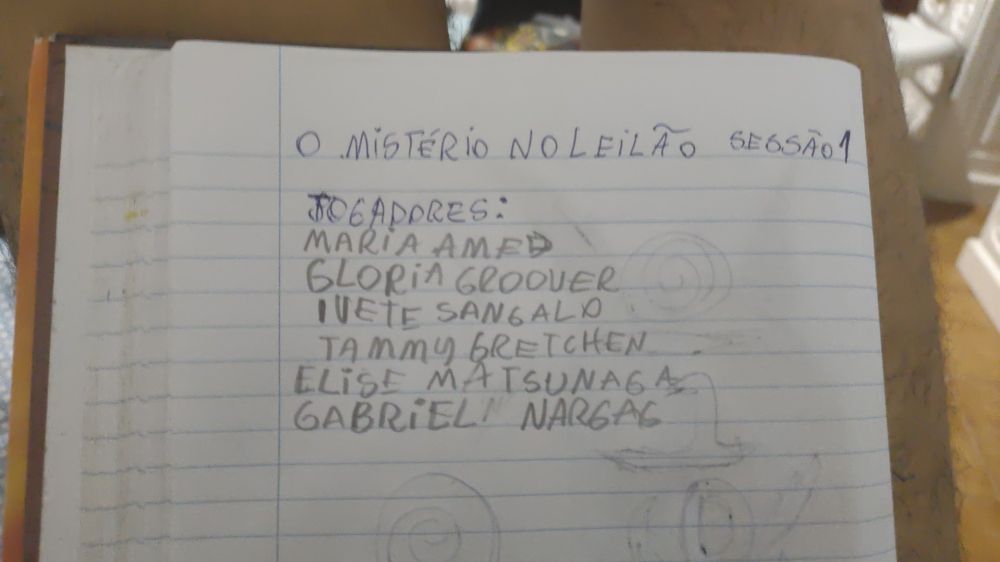 O MISTÉRIO NO LEILÃO SESSÃO 1
JOGADORES:
MARIA AMED
GLORIA GROOVER
IVETE SANGALO
TAMMY GRETCHEN
ELISE MATSUNAGA
GABRIEL NARGAG